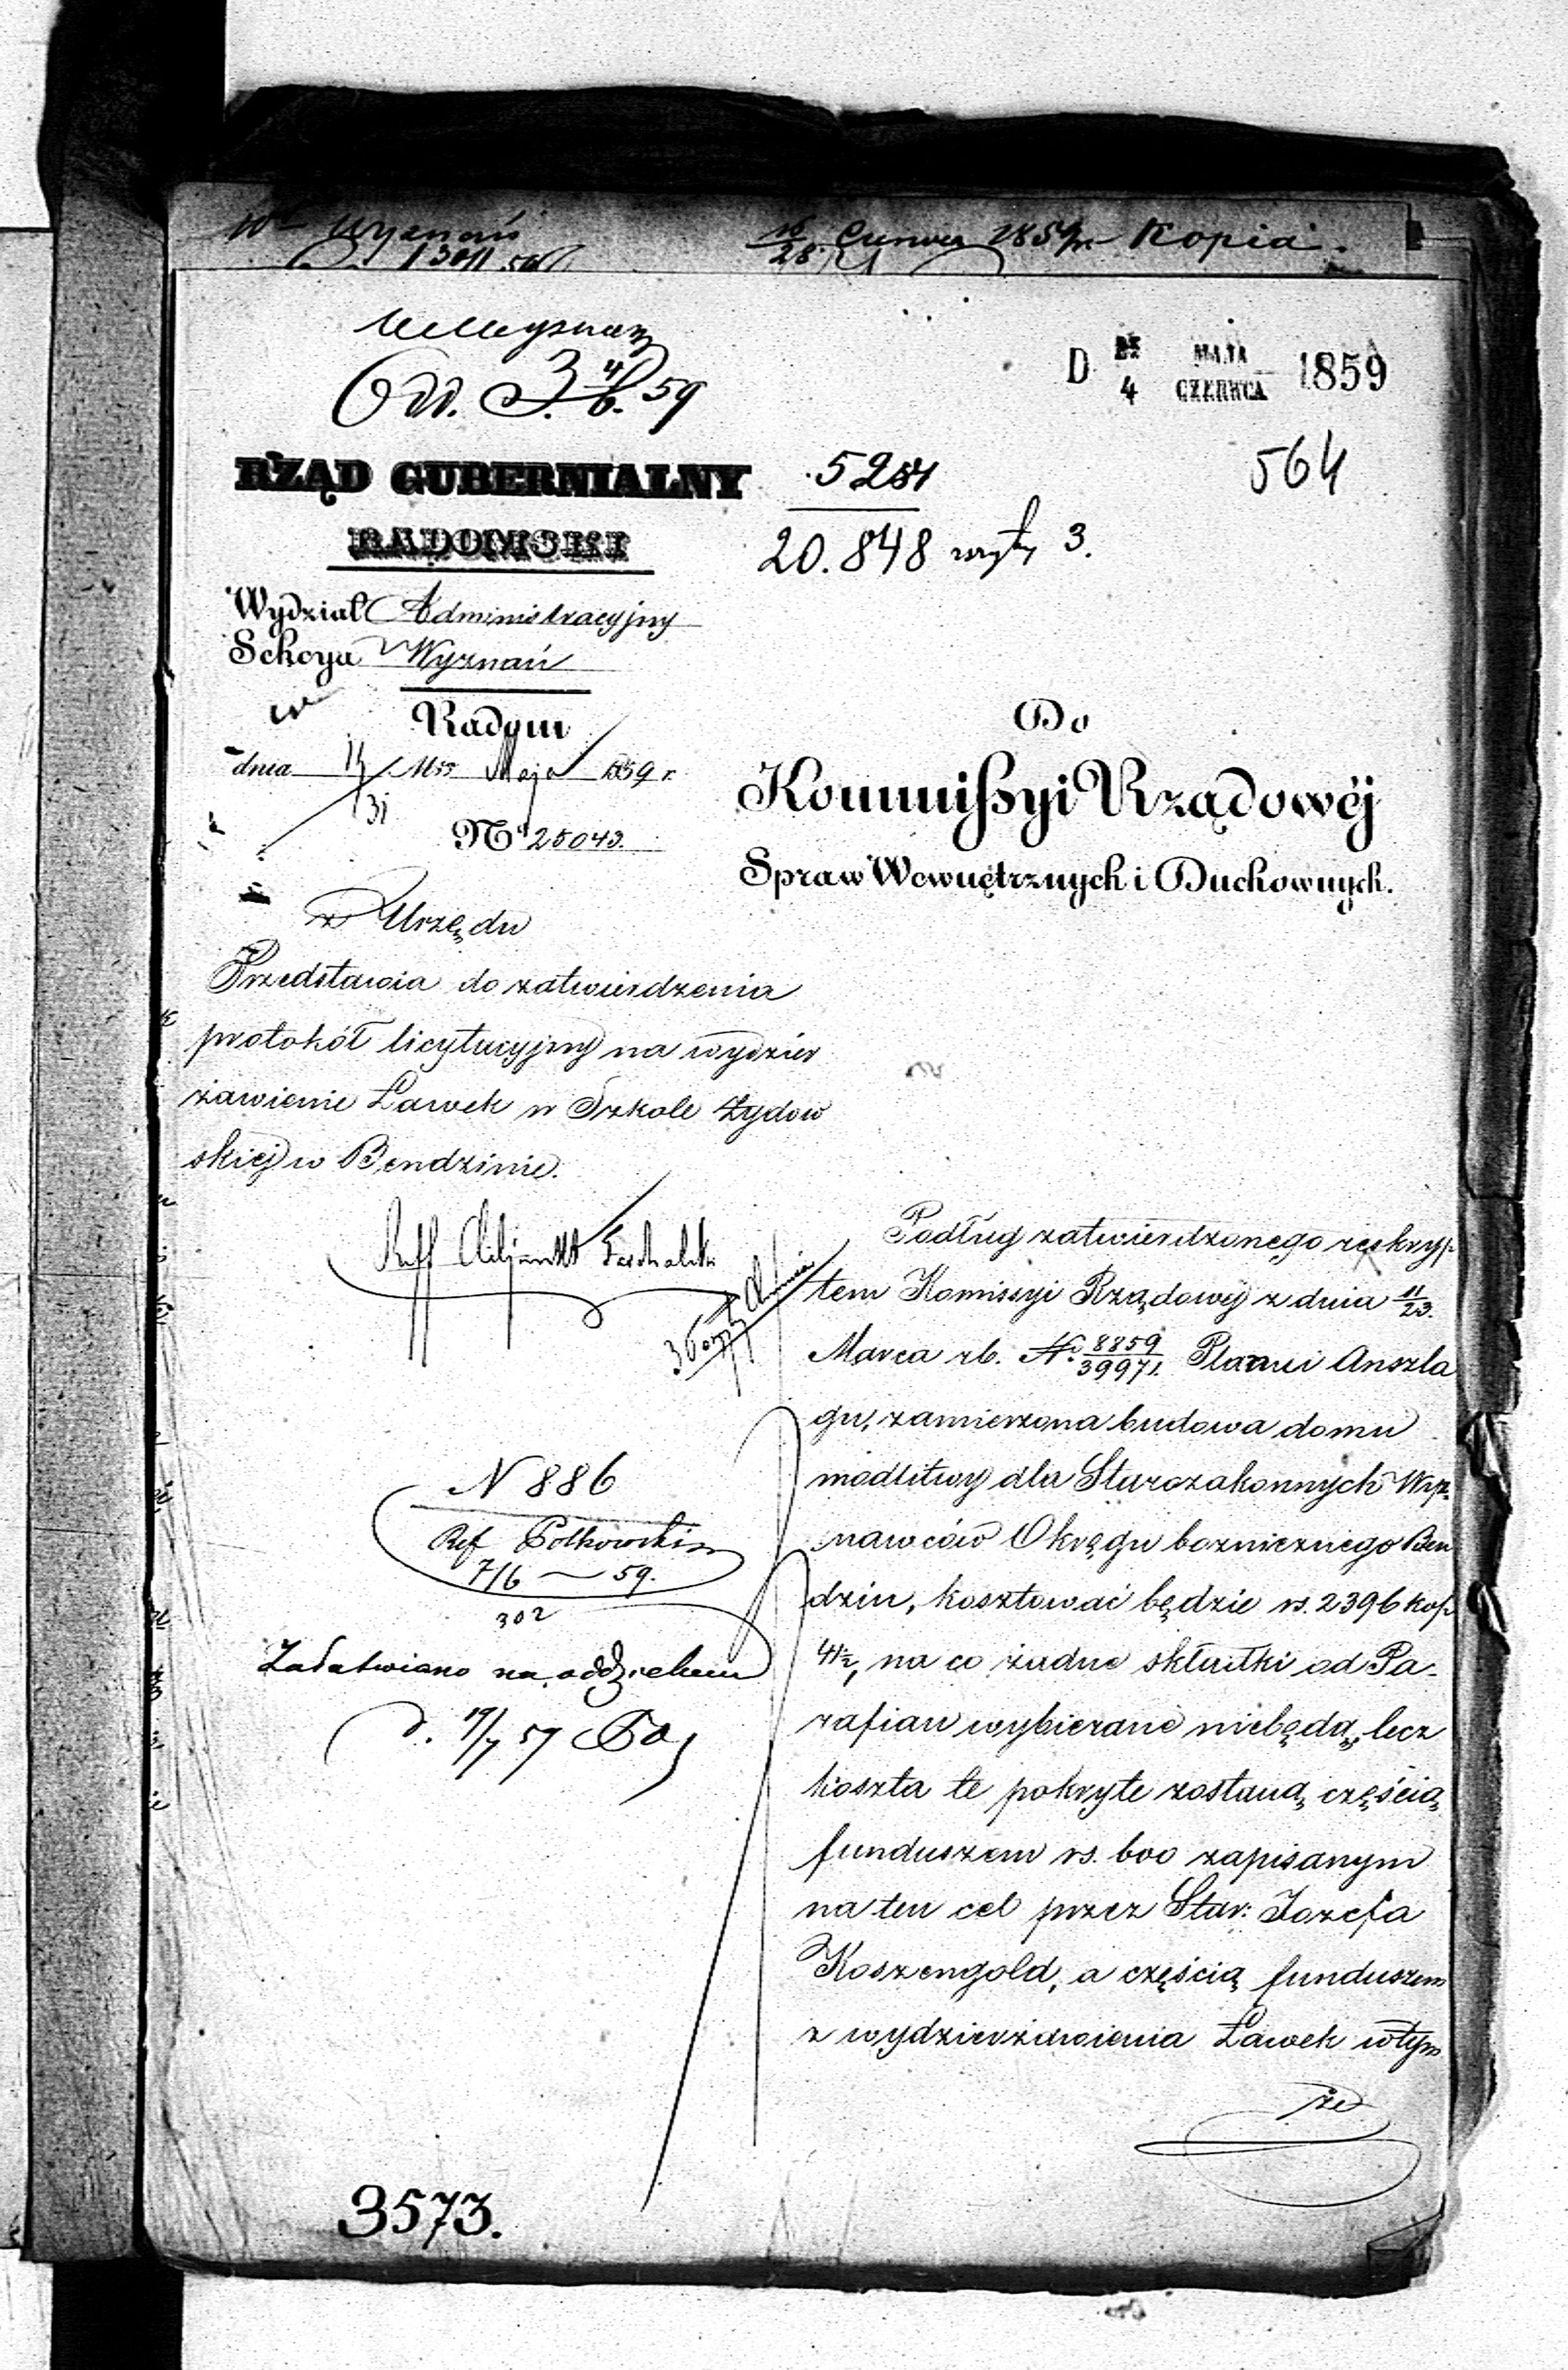 Wyznań
16/28 Czerwca 1859 r. Kopia.
Od. 3 4/6. 59
D 23/4 MAJA/CZERWCA 1859
564
RZĄD GUBERNIALNY
RADOMSKI
5251
20.848 3.
Wydział Administracyjny
Sekcya Wyznań
Radom
dnia 19/31 Mca Maja 1859 r.
No 25043.
Do
Kommissyi Rządowéj
Spraw Wewnętrznych i Duchownych.
z Urzędu
Przedstawia do zatwierdzenia
protokół licytacyjny na wydzier
żawienie Ławek w Szkole Żydow
skiej w Bendzinie.
N 886
Ref
7/6 — 59.
302
Załatwiono na oddzielnem
d.
Podług zatwierdzonego reskryp
tem Komissyi Rządowej z dnia 11/23.
Marca rb. No. 8859/39971. Planu i Anszla
gu, zamierzona budowa domu
modlitwy dla Starozakonnych Wyz-
nawców Okręgu bożnicznego Ben
dzin, kosztować będzie rs. 2396 kop
41½, na co żadne składki od Pa-
rafian wybierane niebędą, lecz
koszta te pokryte zostaną, częścią
funduszem rs. 600 zapisanym
na ten cel przez Star: Jozefa
Roszengold, a częścią funduszem
z wydzierżawienia Ławek wtym
że
3573.